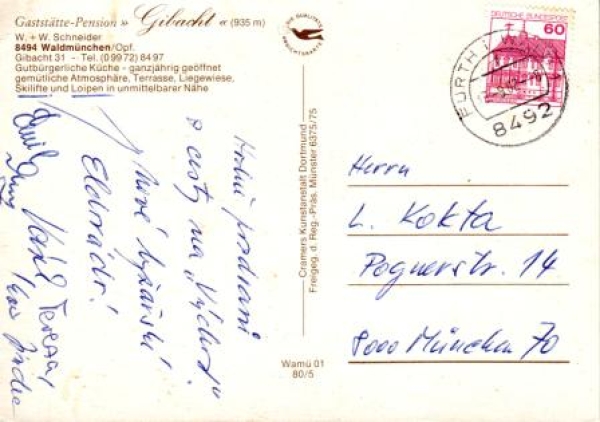 Gaststätte-Pension » Gibacht « (935 m)
W. + W. Schneider
8494 Waldmünchen/Opf.
Gibacht 31 - Tel. (0 99 72) 84 97
Gutbürgerliche Küche - ganzjährig geöffnet
gemütliche Atmosphäre, Terrasse, Liegewiese,
Skilifte und Loipen in unmittelbarer Nähe
DIE QUALITÄTS
ANSICHTSKARTE
DEUTSCHE BUNDESPOST
60
FURTH i WALD
8492
Cramers Kunstanstalt Dortmund
Freigeg. d. Reg.-Präs. Münster 6375/75
Wamü 01
80/5
Herrn
L. Kokta
Pognerstr. 14
8000 München 70
Hodně pozdravů
z cesty na „Východ"
Nové lyžařské
Eldorádo!